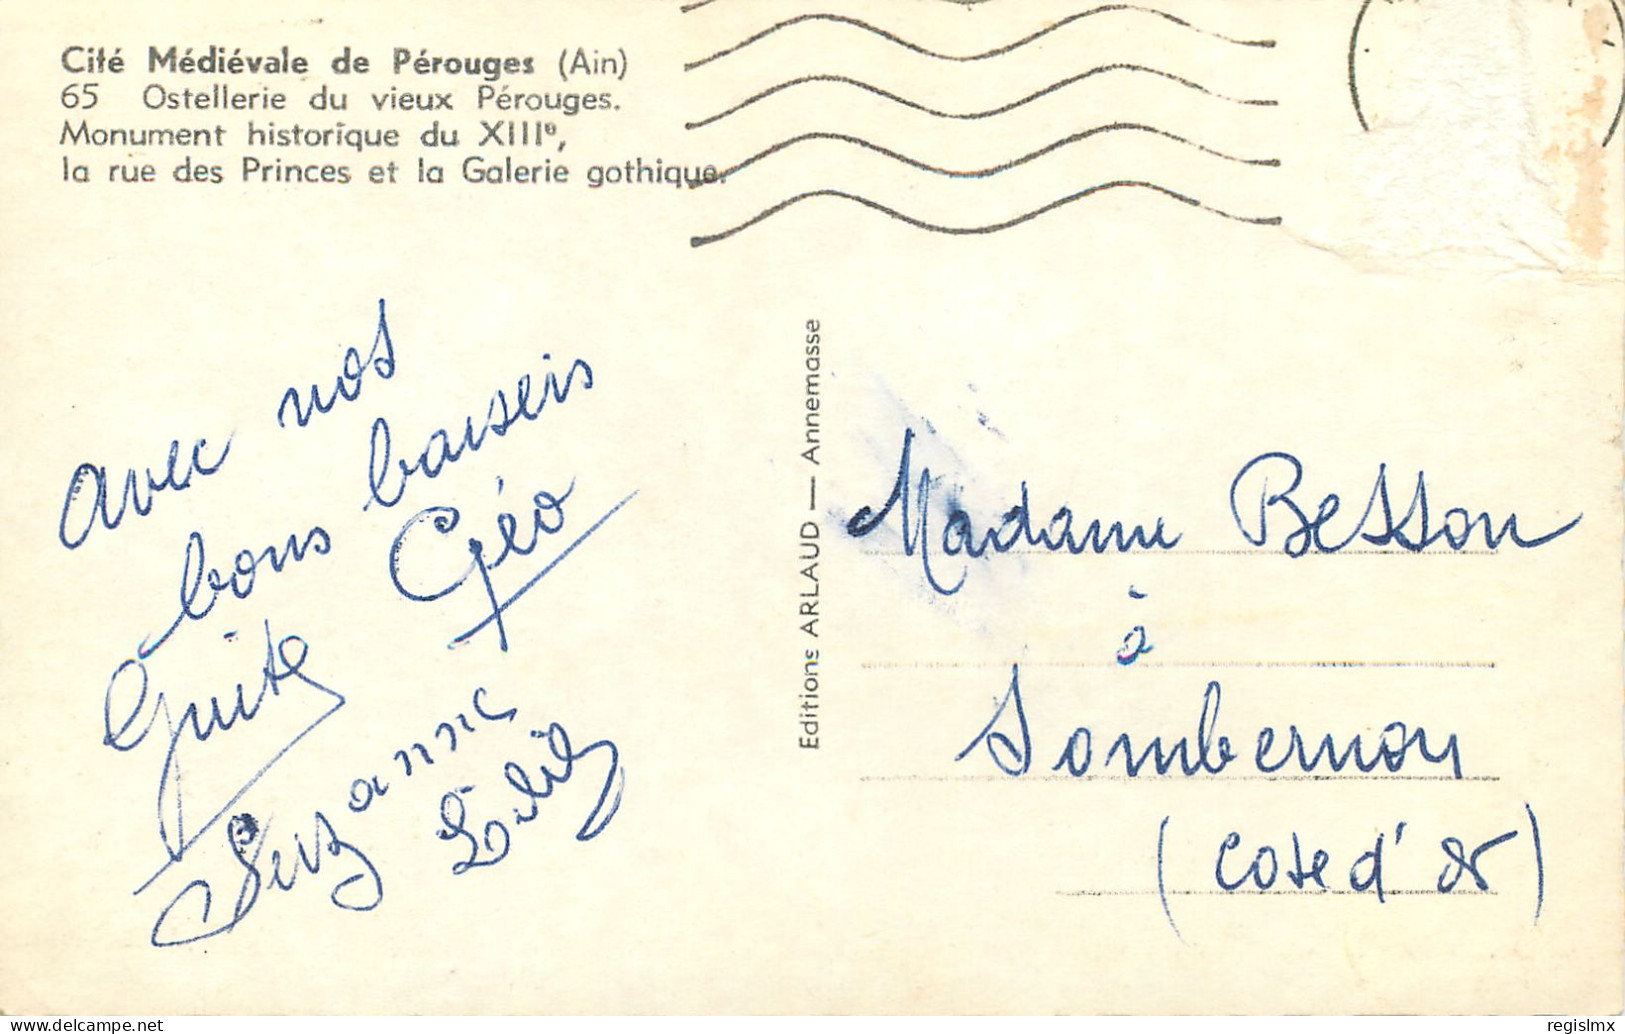 Cité Médiévale de Pérouges (Ain)
65 Ostellerie du vieux Pérouges.
Monument historique du XIIIe,
la rue des Princes et la Galerie gothique.
avec nos
bons baisers
Géo
Guite
Suzanne
Editions ARLAUD — Annemasse
Madame Besson
à
Sombernon
(Cote d'or)
delcampe.net
regislmx